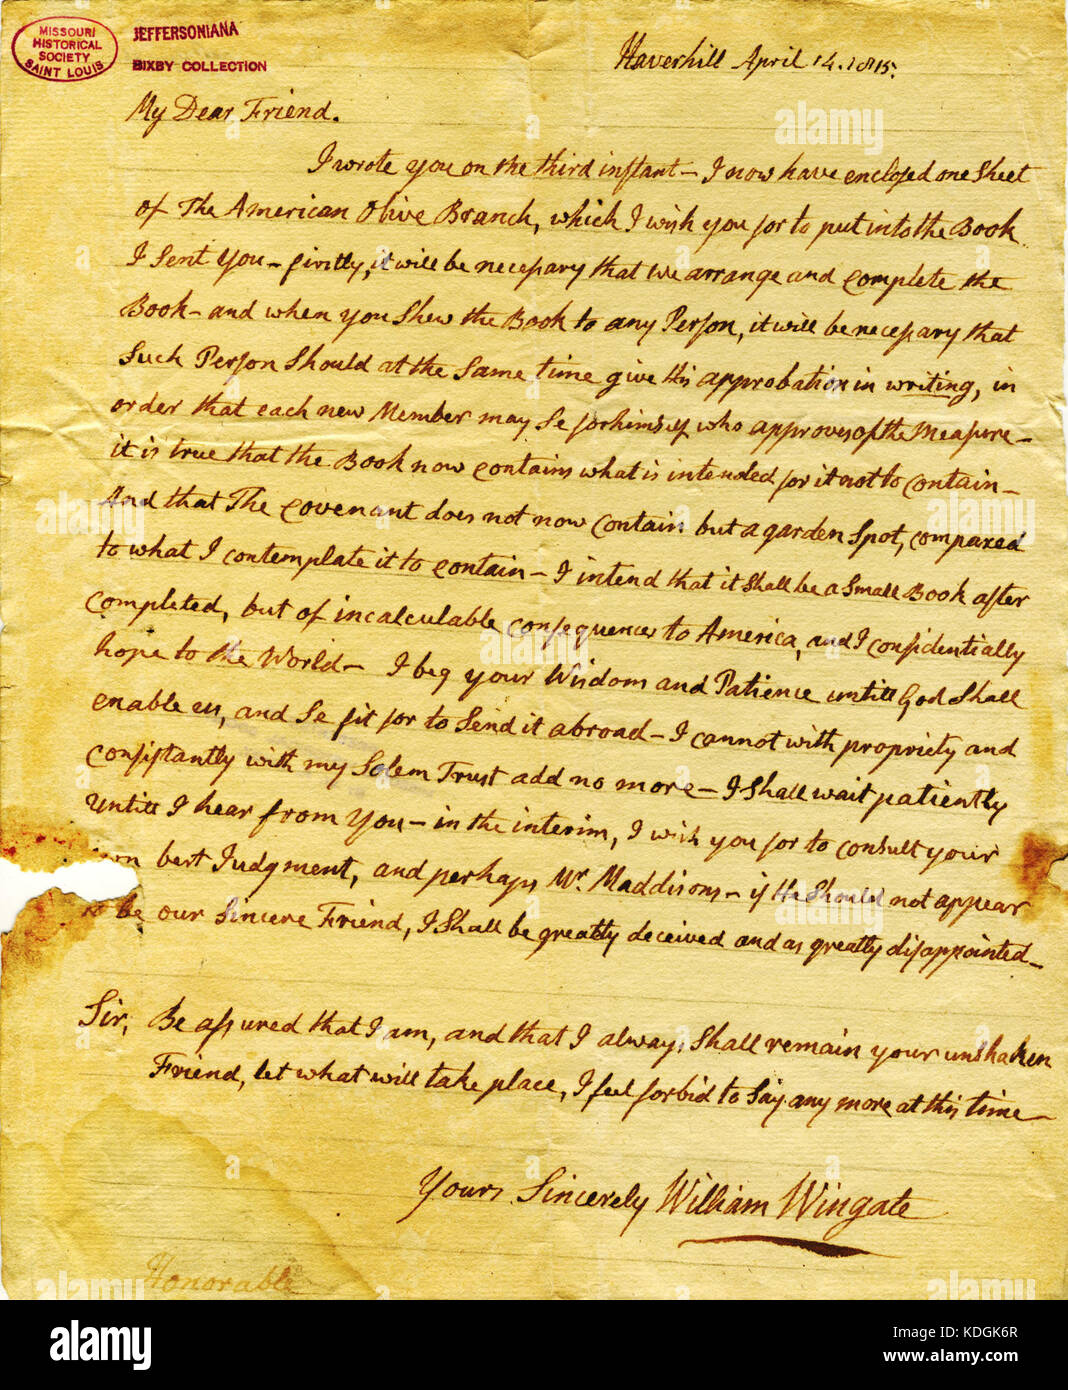 MISSOURI
HISTORICAL
SOCIETY
SAINT LOUIS
JEFFERSONIANA
BIXBY COLLECTION
Haverhill April 14. 1815.
My Dear Friend.
I wrote you on the third instant – I now have enclosed one Sheet
of The American Olive Branch, which I wish you for to put into the Book
I Sent You – firstly, it will be necessary that we arrange and complete the
Book – and when you Shew the Book to any Person, it will be necessary that
Such Person Should at the Same time give his approbation in writing, in
order that each new Member may Se for himself who approves of the Measure –
it is true that the Book now contains what is intended for it not to contain –
And that The Covenant does not now contain but a garden Spot, compared
to what I contemplate it to contain – I intend that it Shall be a Small Book after
completed, but of incalculable consequences to America, and I confidentially
hope to the World – I beg your Wisdom and Patience untill God Shall
enable us, and Se fit for to Send it abroad – I cannot with propriety and
consistantly with my Solem Trust add no more – I Shall wait patiently
Untill I hear from You – in the interim, I wish you for to consult your
own best Judgment, and perhaps Mr. Maddisons – if He Should not appear
to be our Sincere Friend, I Shall be greatly deceived and as greatly disappointed –
Sir, Be assured that I am, and that I always Shall remain your unshaken
Friend, let what will take place, I feel forbid to Say any more at this time –
Yours Sincerely William Wingate
Honorable
alamy
Image ID: KDGK6R
www.alamy.com